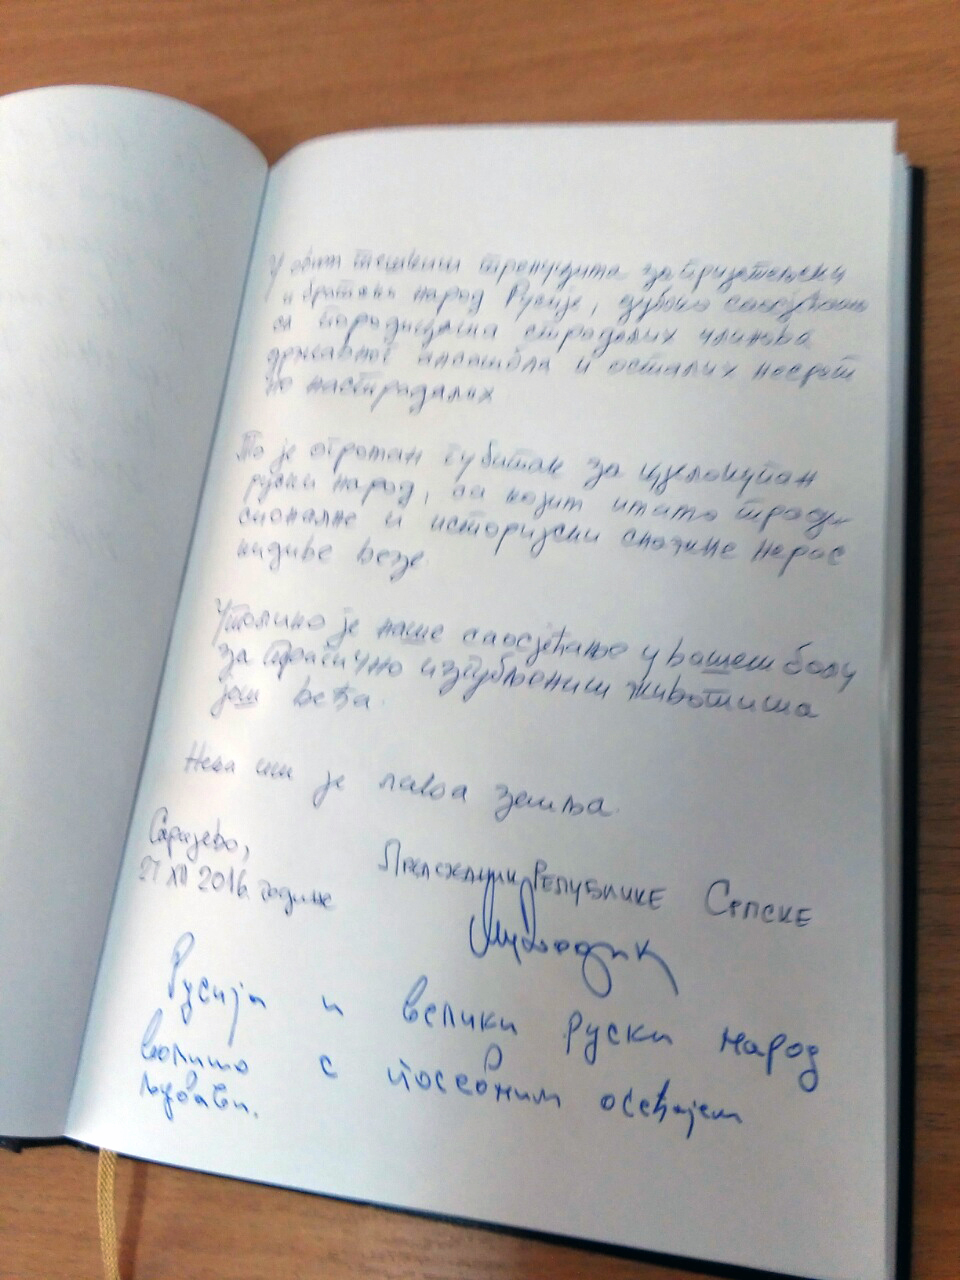 У овим тешким тренуцима за пријатељски
и братски народ Русије, дубоко саосјећамо
са породицама страдалих чланова
државног ансамбла и осталих несрет
но настрадалих
То је огроман губитак за цјелокупан
руски народ, са којим имамо тради
сионалне и историјски снажне нерас
кидиве везе.
Утолико је наше саосјећање у вашем болу
за трагично изгубљеним животима
још веће.
Нека им је лака земља.
Сарајево,
27 XII 2016. године
Предсједник Републике Српске
Русију и велики руски народ
волимо с посебним осећајем
љубави.